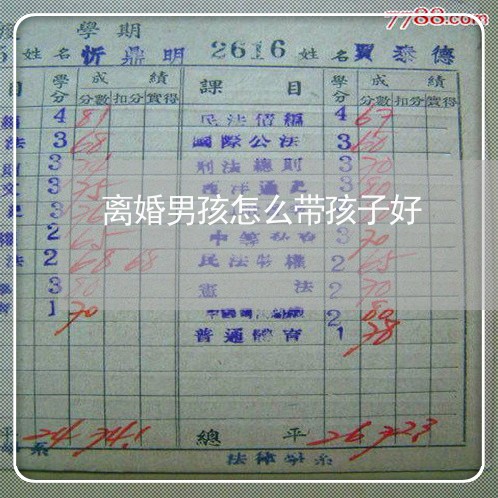 7788.com
學期
姓名 忻鼎明 2616 姓名 賈泰德
目 學分 成績 課目 學分 成績
分數 扣分 實得 分數 扣分 實得
4 81 民法債編 4 67
法 3 68 國際公法 3 60
3 刑法總則 3 70
3 75 西洋通史 3 80
离婚男孩怎么带孩子好
2 65 3 70
法 2 68 68 民法物權 2 65
3 80 憲法 2 70
1 70 2 80
普通體育 1 78
平 24 74.1 總平 26 72.3
法律學系